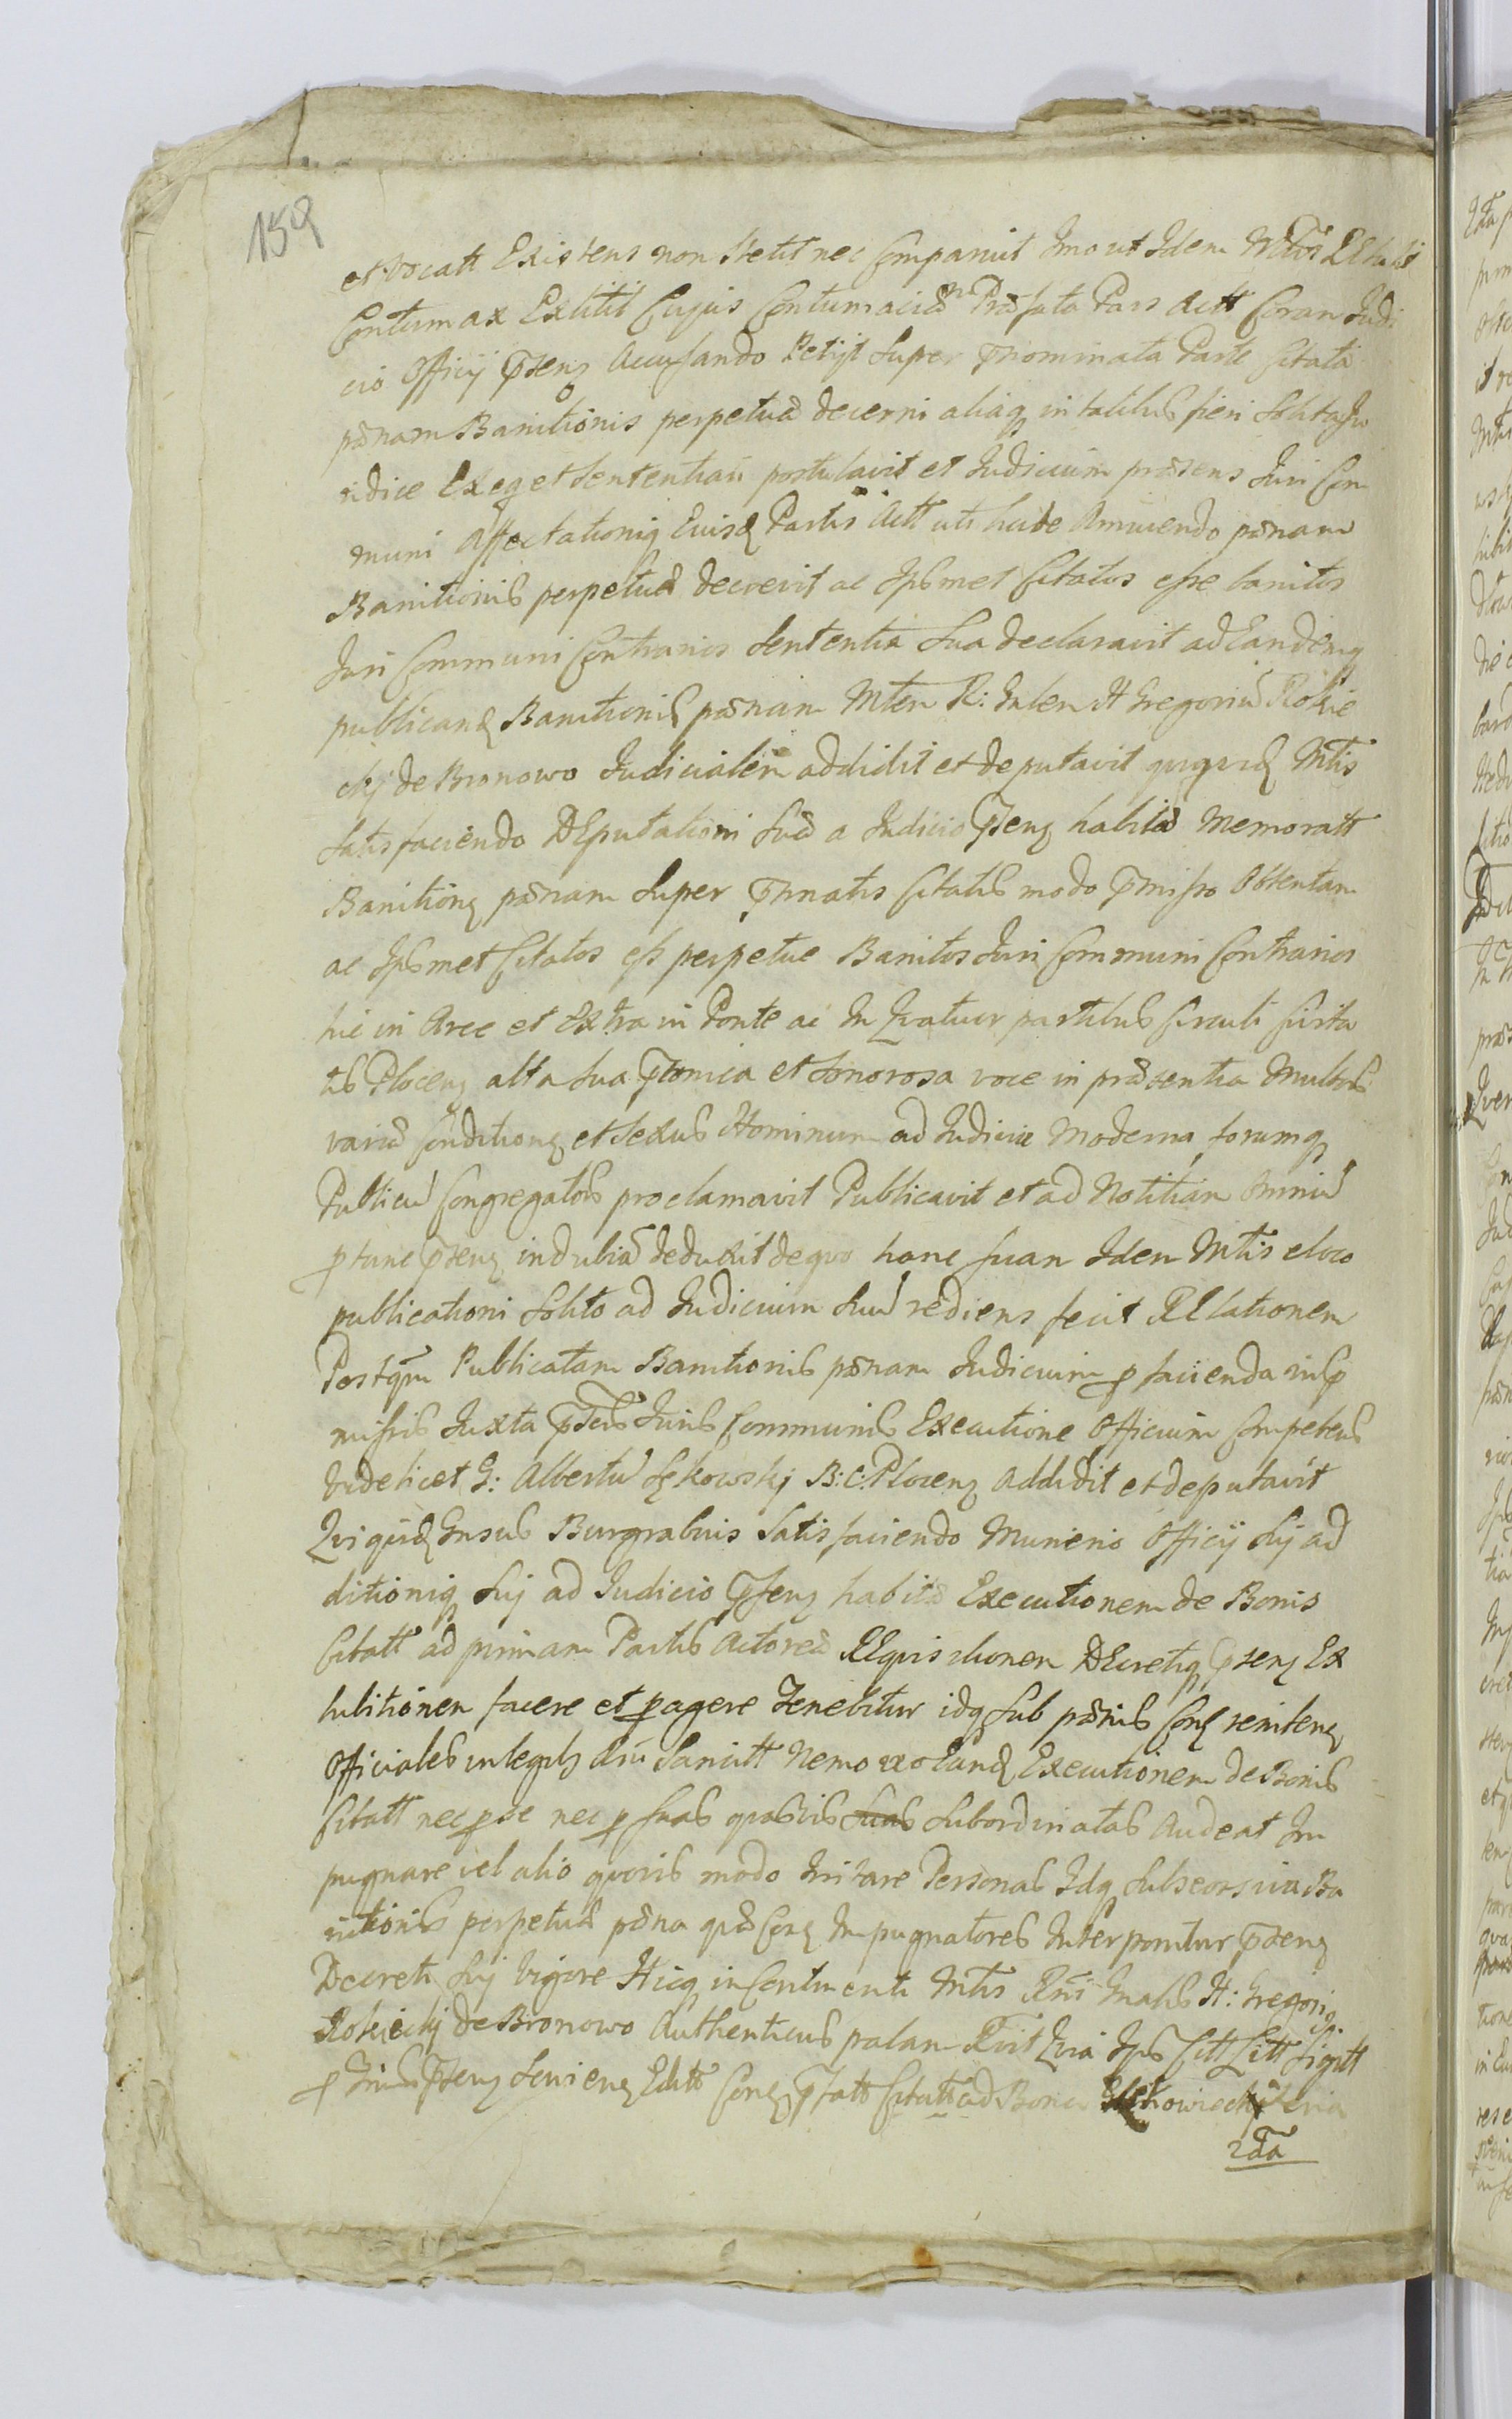 159
et vocatt Existens non stetit nec Comparuit Imo ut Idem Mtris REtulit
Contumax Extitit Cujus Contumaciã Præfata Pars Actt Coram Judi
cio Officij p̃senz Accusando Petijt Super p̃nominata Parte Citata
pœnam Banitionis perpetuæ decerni aliaq in talibus fieri Solita Ju
ridice Exeq et Sententiari postulavit et Judicium præsens Juri Com
muni Affectationiq Eiusd Partis Actt uti Annuendo pœnam
Banitionis perpetuæ decrevit ac Ipsmet Citatos esse banitos
Juri Communi Contrarios Sententia Sua declaravit ad Eandemq
publicand Banitionis pœnam Mtem R: Gnlem H Gregoriũ Rokic
ckij de Bronowo Judicialem addidit et deputavit quiquid Mtis
Satisfaciendo DEputationi Suæ a Judicio p̃senz habitæ Memoratt
Banitionz pœnam Super p̃nnatis Citatis modo p̃misso Obtentam
ac Ipsmet Citatos esse perpetue Banitos Juri Communi Contrarios
hic in Arce et Extra in Ponte ac In Quatuor partibus Circuli Civita
tis Plocenz alta Sua p̃conica et Sonorosa voce in præsentia Multorũ
variæ Conditionz et Sexus Hominum ad Judicia Moderna forumq
Publicũ Congregatorũ proclamavit Publicavit et ad Notitiam Omniũ
p tunc p̃senz indubiã deduxit de quo hanc suam Idem Mtis eloco
publicationi Solito ad Judicium Suũ rediens fecit RElationem
Postq̃m Publicatam Banitionis pœnam Judicium p facienda in p
missis Juxta Juris Communis Executione Officium Competens
Videlicet G: Albertũ Lękowskj B: C: Plocenz Addidit et deputavit
Qui quid Gnsus Burgrabius Satisfaciendo Muneris Officij Sui ad
ditioniq Suj ad Judicio p̃senz habitæ Executionem de Bonis
Citatt ad primam Partis Actoreæ REquisitionem DEcretiq p̃senz Ex
hibitionem facere et pagere Tenebitur idq Sub pœnis Contz renitenz
Officiales in legibz Sancitt Nemo vero Eand Executionem de Bonis
Citatt nec p se nec p suas quasvis Suas Subordinatas Audeat Im
pugnare vel alio quovis modo Irritare Personas Idq Sub Ba
nitionis perpetuæ pœna quæ Contz Impugnatores Interponitur p̃senz
Decreti Suj Vigore Hicq in Continenti Mtis Rm̃i Gnalis H: Gregorij
Rokickij de Bronowo Authenticus palam REcit Quia Ips Citt Litt Sigitt
p̃senz Sewienz Editt Contz p̃fatt Citatt ad Bona
2da